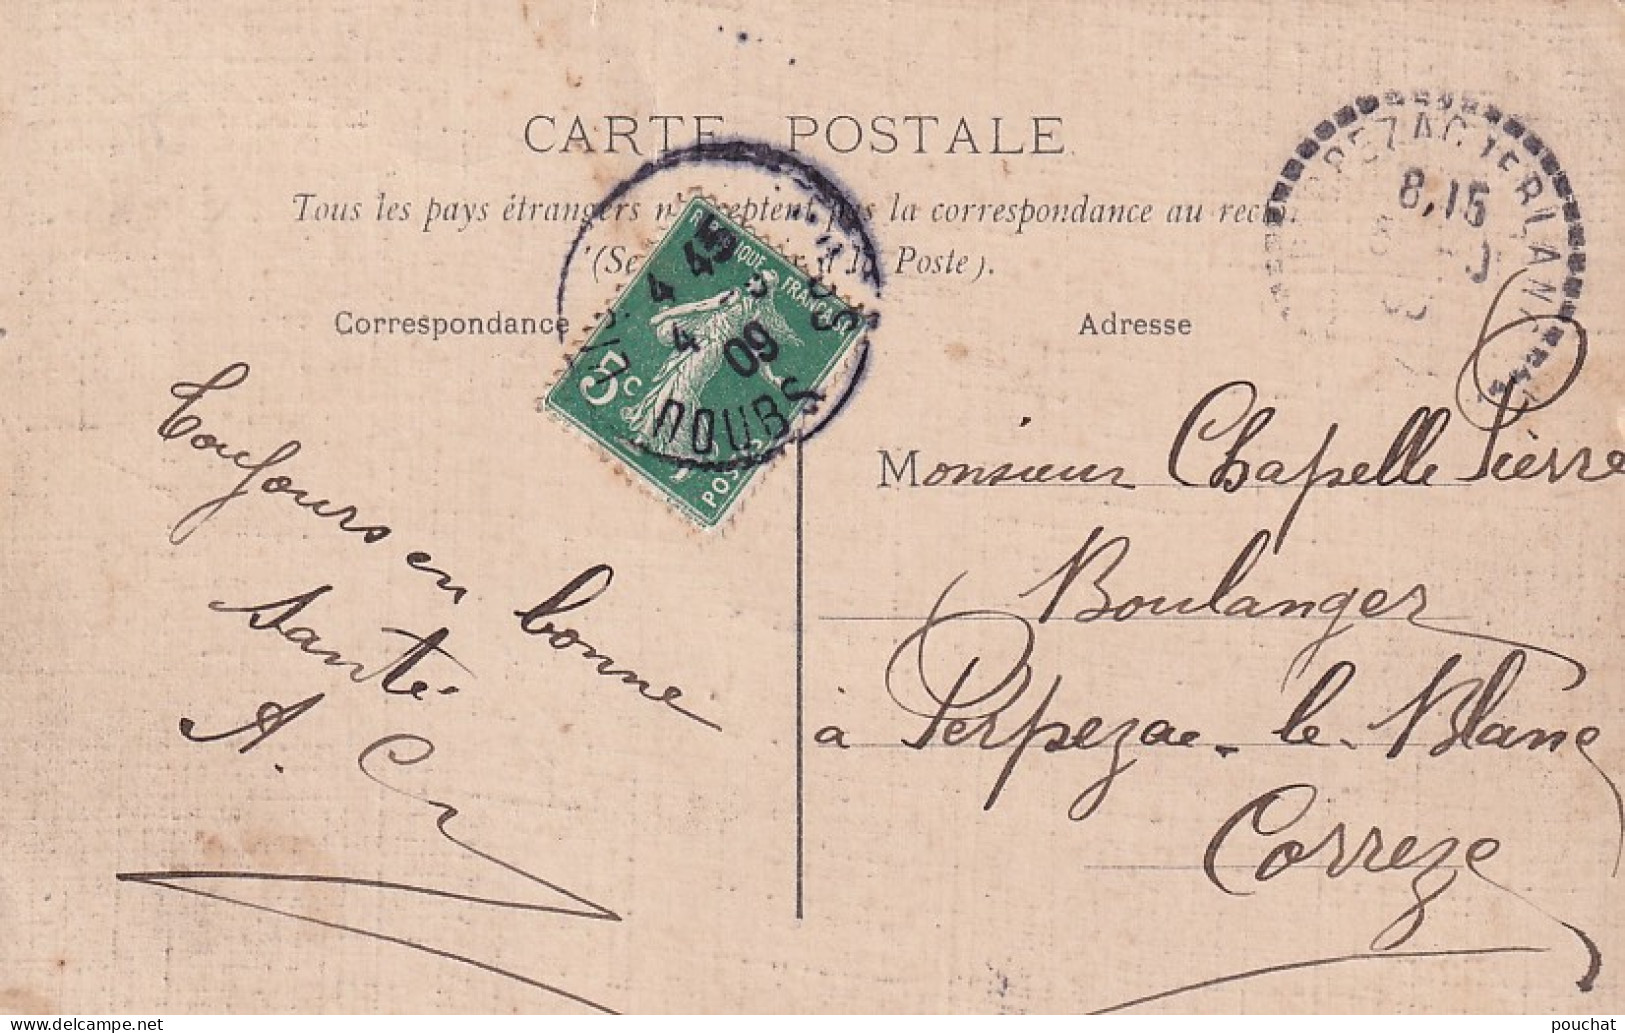 CARTE POSTALE
Tous les pays étrangers n'acceptent pas la correspondance au recto.
à la Poste).
Correspondance
Adresse
RÉPUBLIQUE FRANÇAISE
5c
POSTES
4 45
4 09
DOUBS
8,15
Toujours en bonne
santé
A. C
Monsieur Chapelle Pierre
Boulanger
à Perpezac-le-Blanc
Correze
pouchat